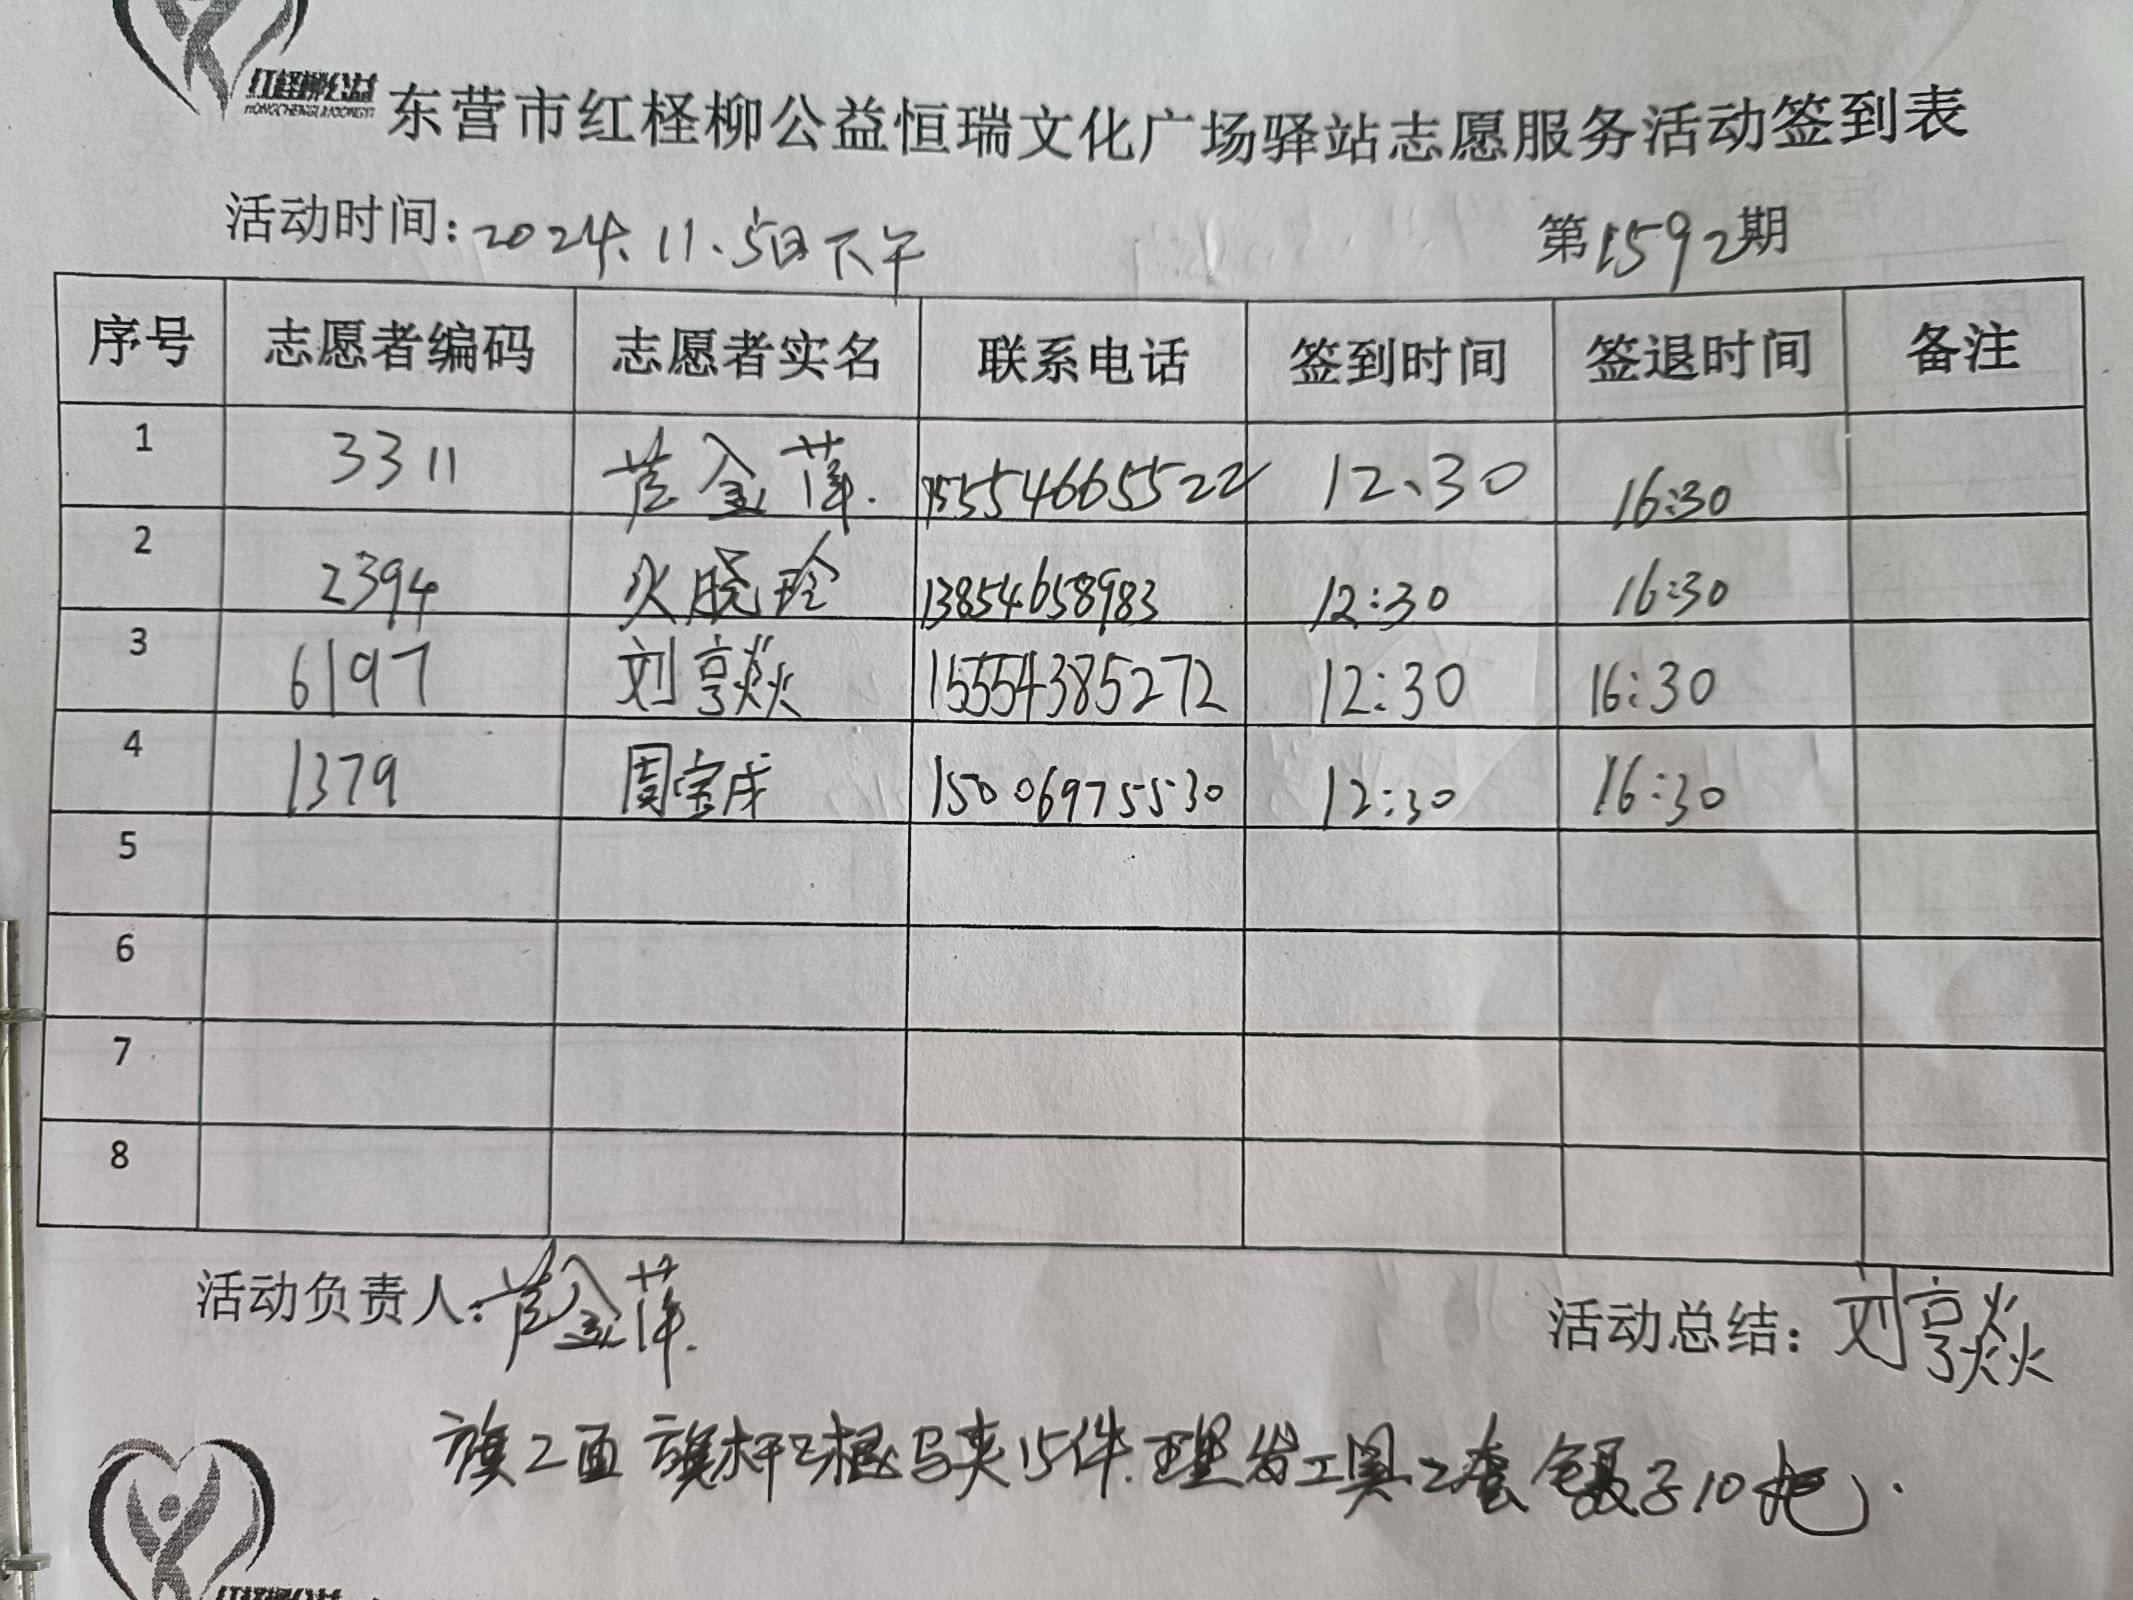 红柽柳公益
HONGCHENGLIUGONGYI
东营市红柽柳公益恒瑞文化广场驿站志愿服务活动签到表
活动时间：2024.11.5日下午 第1592期
序号 志愿者编码 志愿者实名 联系电话 签到时间 签退时间 备注
1 3311 金萍. 15554665522 12、30 16:30
2 2394 晓玲 13854658983 12:30 16:30
3 6197 刘亨焱 15554385272 12:30 16:30
4 1379 周宝成 15006975530 12:30 16:30
5
6
7
8
活动负责人：金萍. 活动总结：刘亨焱
旗2面 旗杆2根 马夹15件.理发工具2套 镊子10把.
红柽柳公益